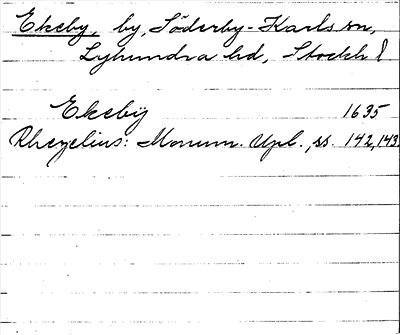 Ekeby, by, Söderby-Karls sn,
Lyhundra hd, Stockh l
Ekebÿ 1635
Rhezelius: Monum. Upl., ss. 142, 143.